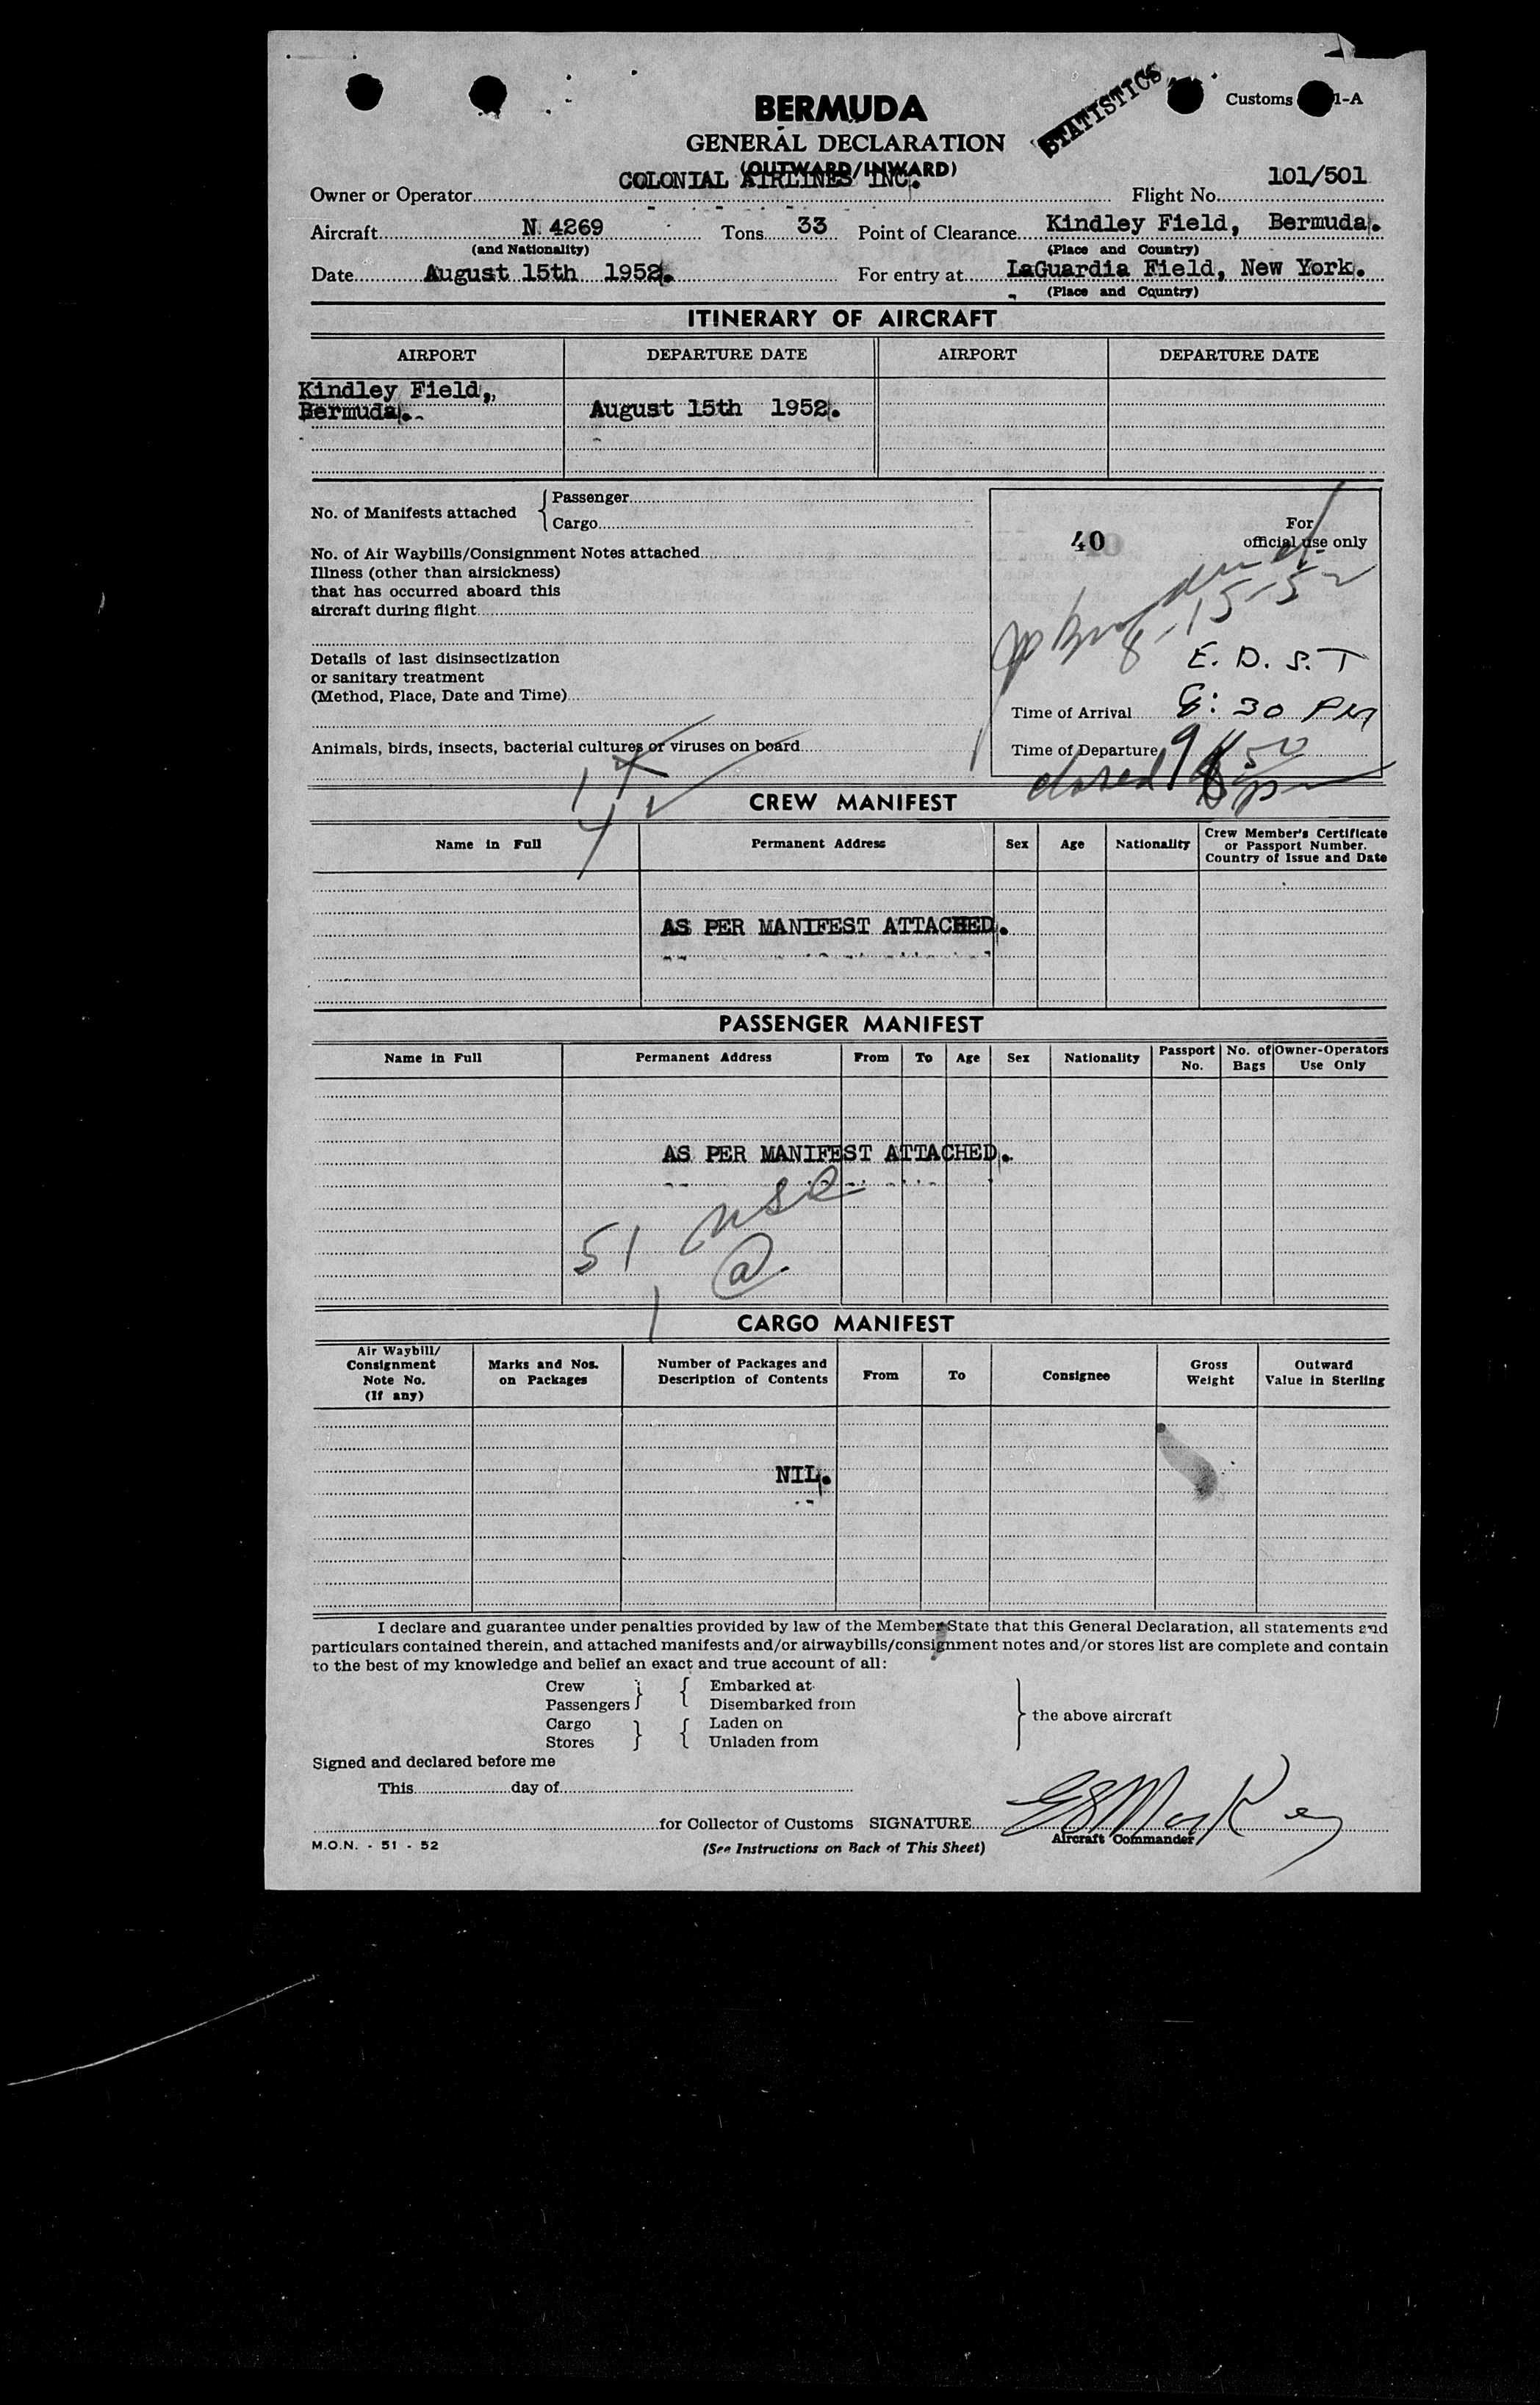 STATISTICS
Customs 1-A
BERMUDA
GENERAL DECLARATION
(OUTWARD/INWARD)
Owner or Operator COLONIAL AIRLINES INC. Flight No. 101/501
Aircraft N 4269 Tons 33 Point of Clearance Kindley Field, Bermuda.
(and Nationality) (Place and Country)
Date August 15th 1952. For entry at LaGuardia Field, New York.
(Place and Country)
ITINERARY OF AIRCRAFT
AIRPORT DEPARTURE DATE AIRPORT DEPARTURE DATE
Kindley Field,
Bermuda. August 15th 1952.
No. of Manifests attached { Passenger
Cargo
For
40 official use only
No. of Air Waybills/Consignment Notes attached
Illness (other than airsickness)
that has occurred aboard this
aircraft during flight
8-15-52
Details of last disinsectization
or sanitary treatment
(Method, Place, Date and Time)
E. D. S. T
Time of Arrival 8:30 PM
Animals, birds, insects, bacterial cultures or viruses on board
Time of Departure
closed 9 50
CREW MANIFEST
Name in Full Permanent Address Sex Age Nationality Crew Member's Certificate or Passport Number. Country of Issue and Date
AS PER MANIFEST ATTACHED.
PASSENGER MANIFEST
Name in Full Permanent Address From To Age Sex Nationality Passport No. No. of Bags Owner-Operators Use Only
AS PER MANIFEST ATTACHED.
51
CARGO MANIFEST
Air Waybill/ Consignment Note No. (If any) Marks and Nos. on Packages Number of Packages and Description of Contents From To Consignee Gross Weight Outward Value in Sterling
NIL.
I declare and guarantee under penalties provided by law of the Member State that this General Declaration, all statements and
particulars contained therein, and attached manifests and/or airwaybills/consignment notes and/or stores list are complete and contain
to the best of my knowledge and belief an exact and true account of all:
Crew } { Embarked at
Passengers } { Disembarked from
Cargo } { Laden on } the above aircraft
Stores } { Unladen from
Signed and declared before me
This day of
for Collector of Customs SIGNATURE
Aircraft Commander
M.O.N. - 51 - 52 (See Instructions on Back of This Sheet)